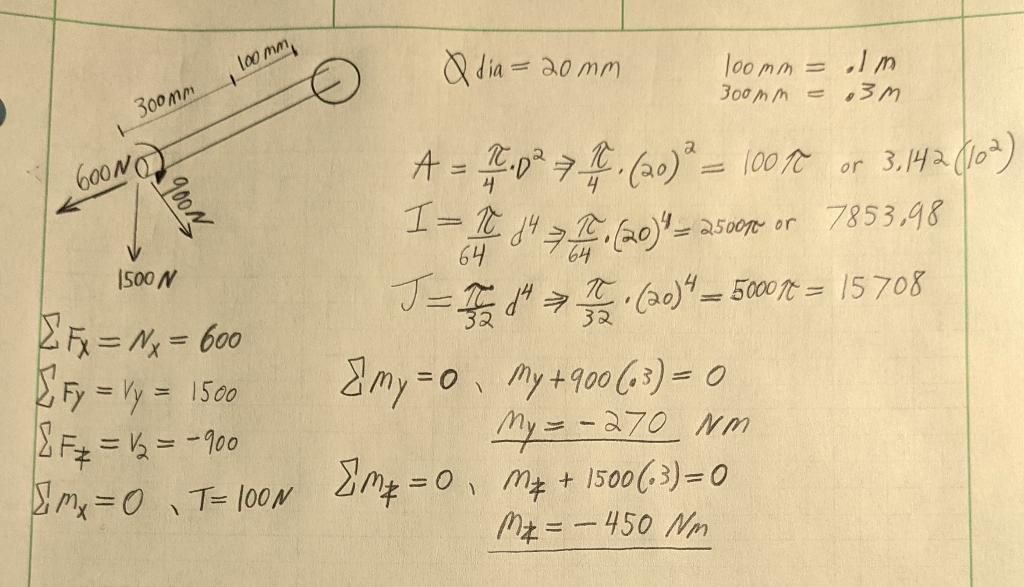 100 mm
300 mm
600 N
900 N
1500 N
Q dia = 20 mm
100 mm = .1 m
300 mm = .3 m
A = π/4 · D² ⇒ π/4 · (20)² = 100π or 3.142 (10²)
I = π/64 d⁴ ⇒ π/64 · (20)⁴ = 2500π or 7853.98
J = π/32 d⁴ ⇒ π/32 · (20)⁴ = 5000π = 15708
ΣFx = Nx = 600
ΣFy = Vy = 1500
ΣFz = Vz = -900
Σmx = 0 , T = 100 N
Σmy = 0 , my + 900(.3) = 0
my = -270 Nm
Σmz = 0 , mz + 1500(.3) = 0
mz = -450 Nm